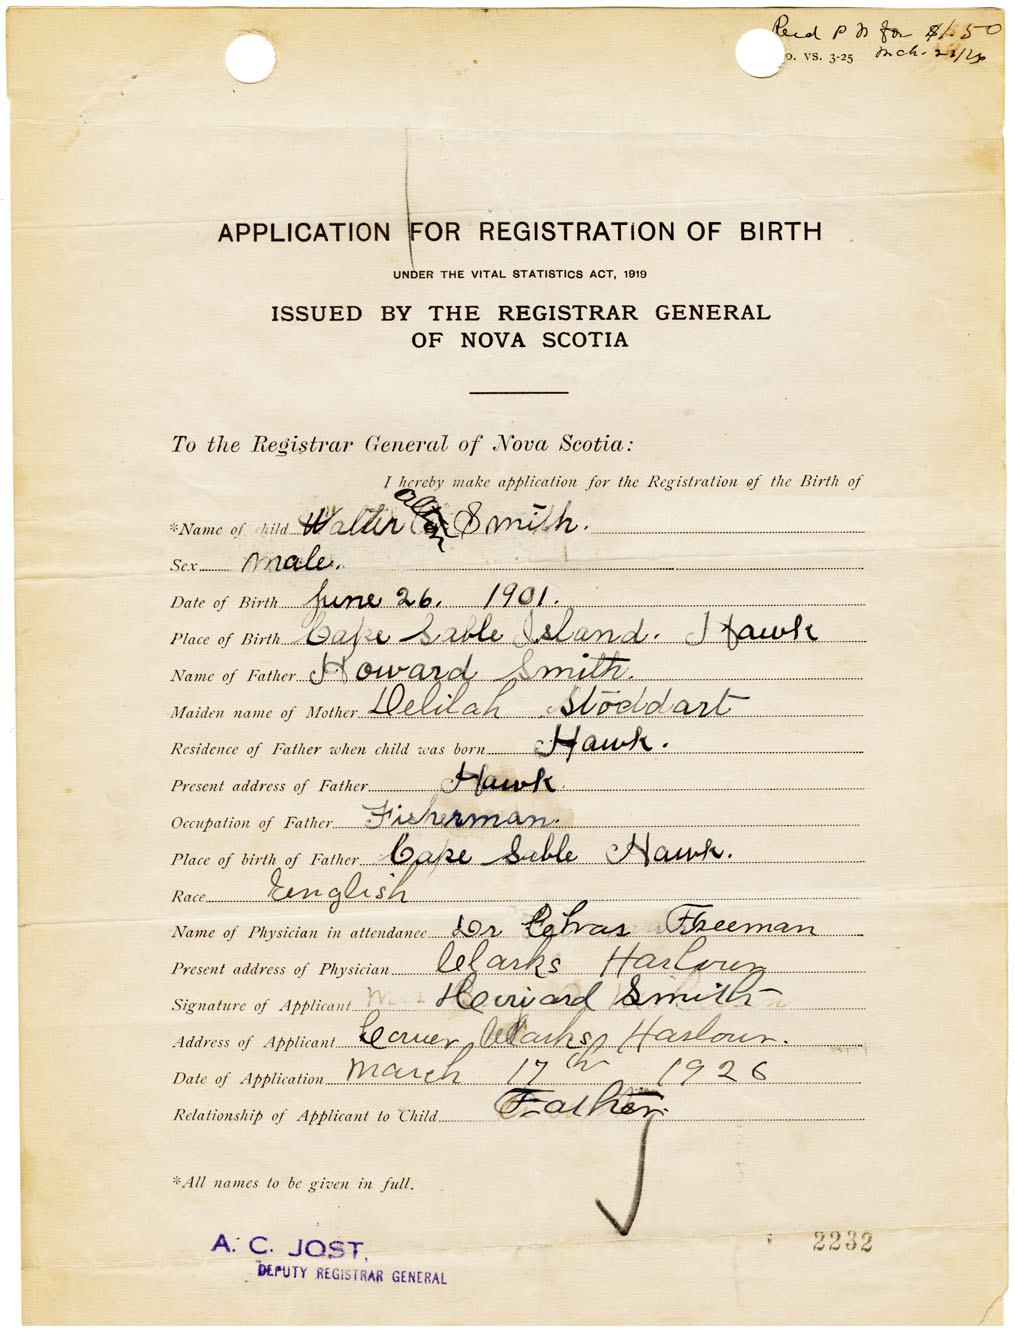 Recd P N for $1.50
o. VS. 3-25 Mch. 23/26
APPLICATION FOR REGISTRATION OF BIRTH
UNDER THE VITAL STATISTICS ACT, 1919
ISSUED BY THE REGISTRAR GENERAL
OF NOVA SCOTIA
To the Registrar General of Nova Scotia:
I hereby make application for the Registration of the Birth of
*Name of child Walter Smith.
Sex Male.
Date of Birth June 26. 1901.
Place of Birth Cape Sable Island. Hawk
Name of Father Howard Smith.
Maiden name of Mother Delilah Stoddart
Residence of Father when child was born Hawk.
Present address of Father Hawk
Occupation of Father Fisherman.
Place of birth of Father Cape Sable Hawk.
Race English
Name of Physician in attendance Dr Freeman
Present address of Physician Clarks Harbour
Signature of Applicant Howard Smith
Address of Applicant Lower Clarks Harbour.
Date of Application March 17th 1926
Relationship of Applicant to Child Father.
*All names to be given in full.
2232
A. C. JOST,
DEPUTY REGISTRAR GENERAL